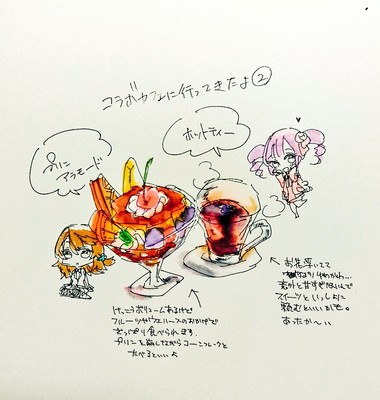 コラボカフェに行ってきたよ②
ホットティー
ぷりん
アラモード
お花浮いてて
かわ…
意外と甘すぎないんで
スイーツといっしょに
頼むといいかも。
あったか〜い
けっこうボリュームあるけど
フルーツやのおかげで
さっぱり食べられます。
プリンを崩しながらコーンフレークと
たべるといいよ